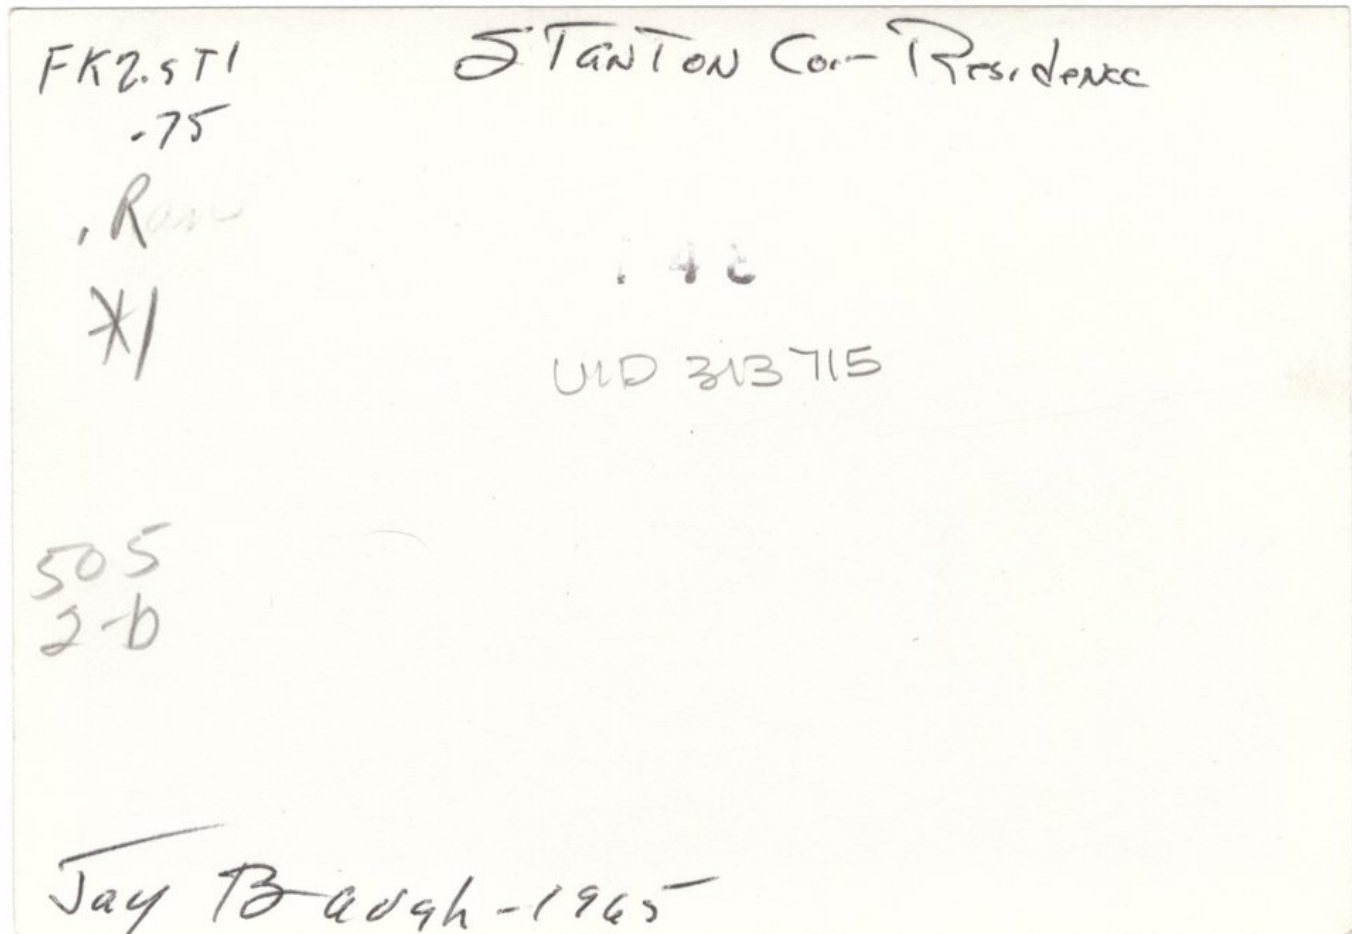 FK2.ST1
.75
Stanton Co.- Residence
.R
*1
UID 313715
505
2-b
Jay Baugh-1965